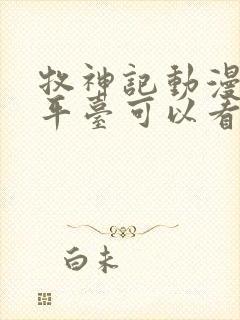 牧神記動漫
平臺可以看
白未